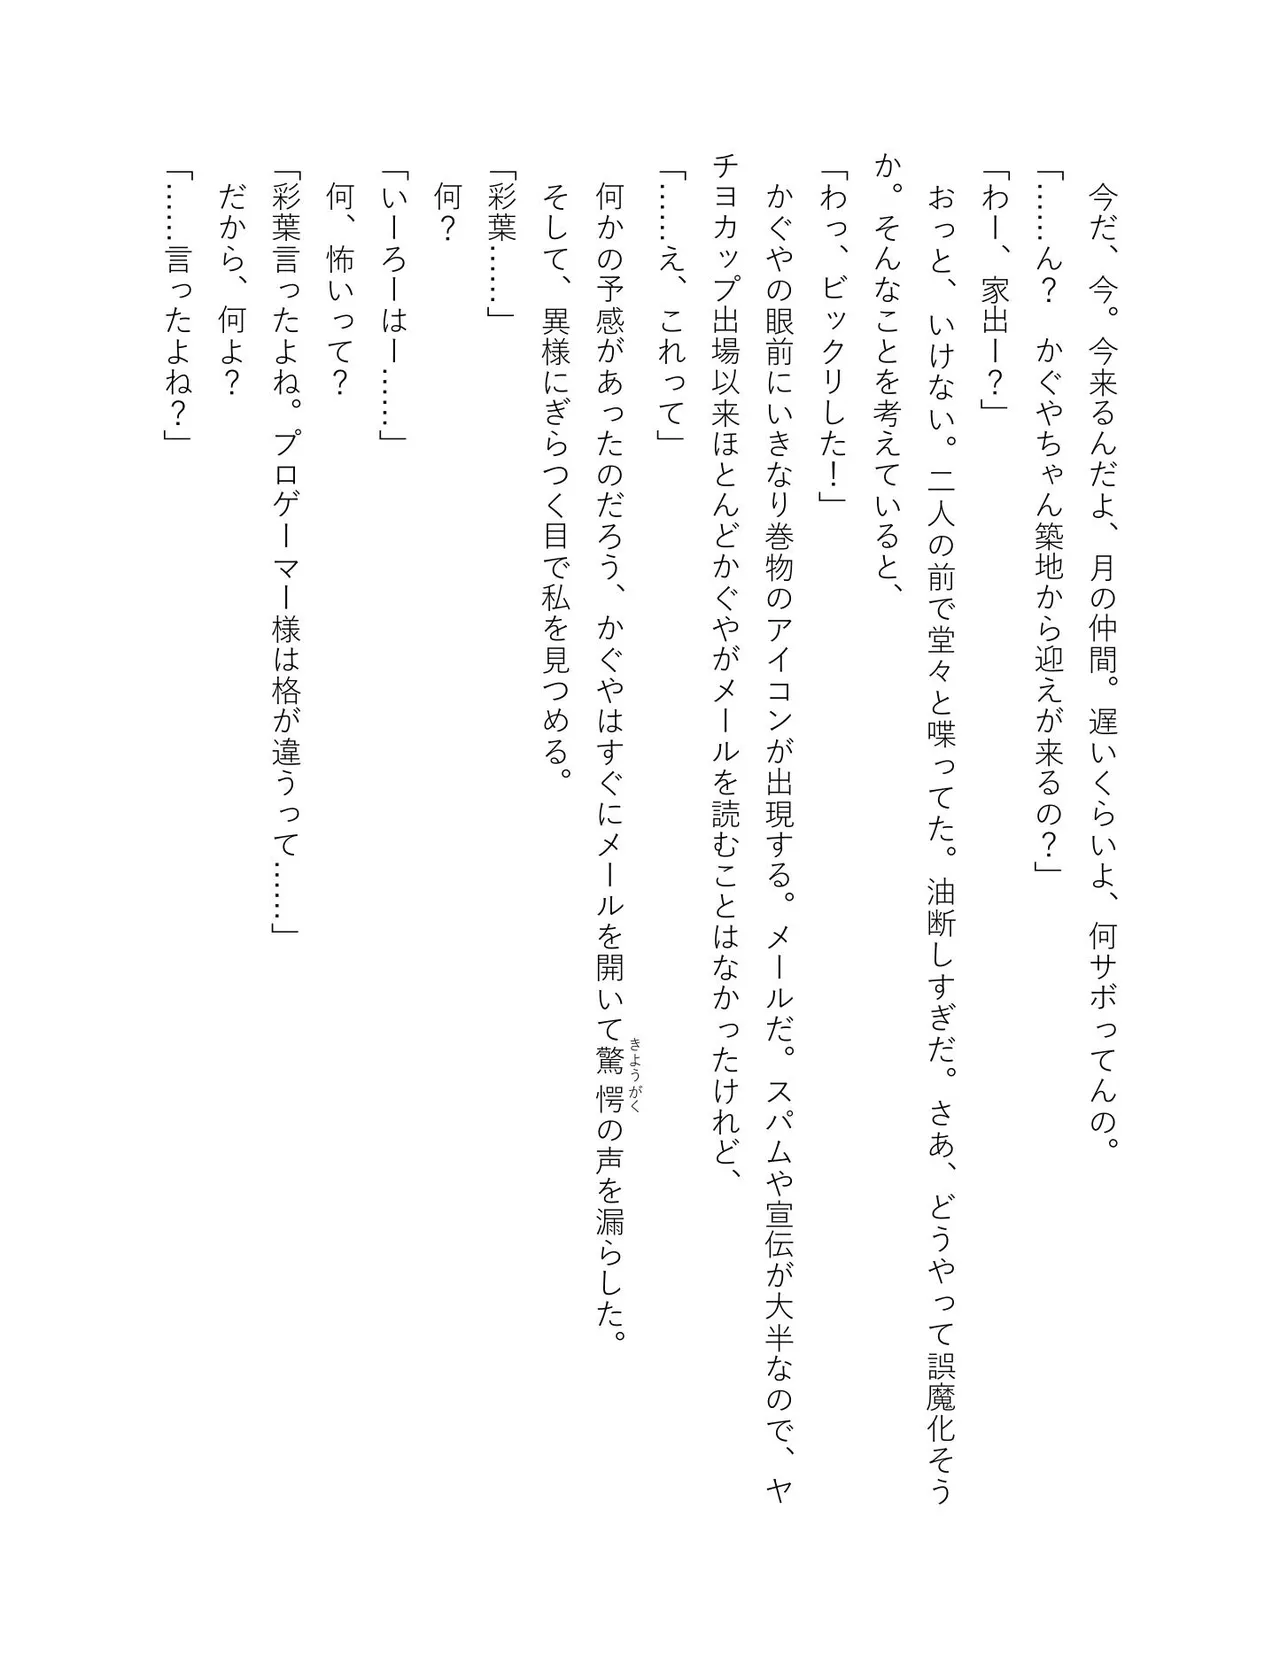 今だ、今。今来るんだよ、月の仲間。遅いくらいよ、何サボってんの。
「……ん？　かぐやちゃん築地から迎えが来るの？」
「わー、家出ー？」
おっと、いけない。二人の前で堂々と喋ってた。油断しすぎだ。さあ、どうやって誤魔化そう
か。そんなことを考えていると、
「わっ、ビックリした！」
かぐやの眼前にいきなり巻物のアイコンが出現する。メールだ。スパムや宣伝が大半なので、ヤ
チヨカップ出場以来ほとんどかぐやがメールを読むことはなかったけれど、
「……え、これって」
何かの予感があったのだろう、かぐやはすぐにメールを開いて驚愕の声を漏らした。
きようがく
そして、異様にぎらつく目で私を見つめる。
「彩葉……」
何？
「いーろーはー……」
何、怖いって？
「彩葉言ったよね。プロゲーマー様は格が違うって……」
だから、何よ？
「……言ったよね？」